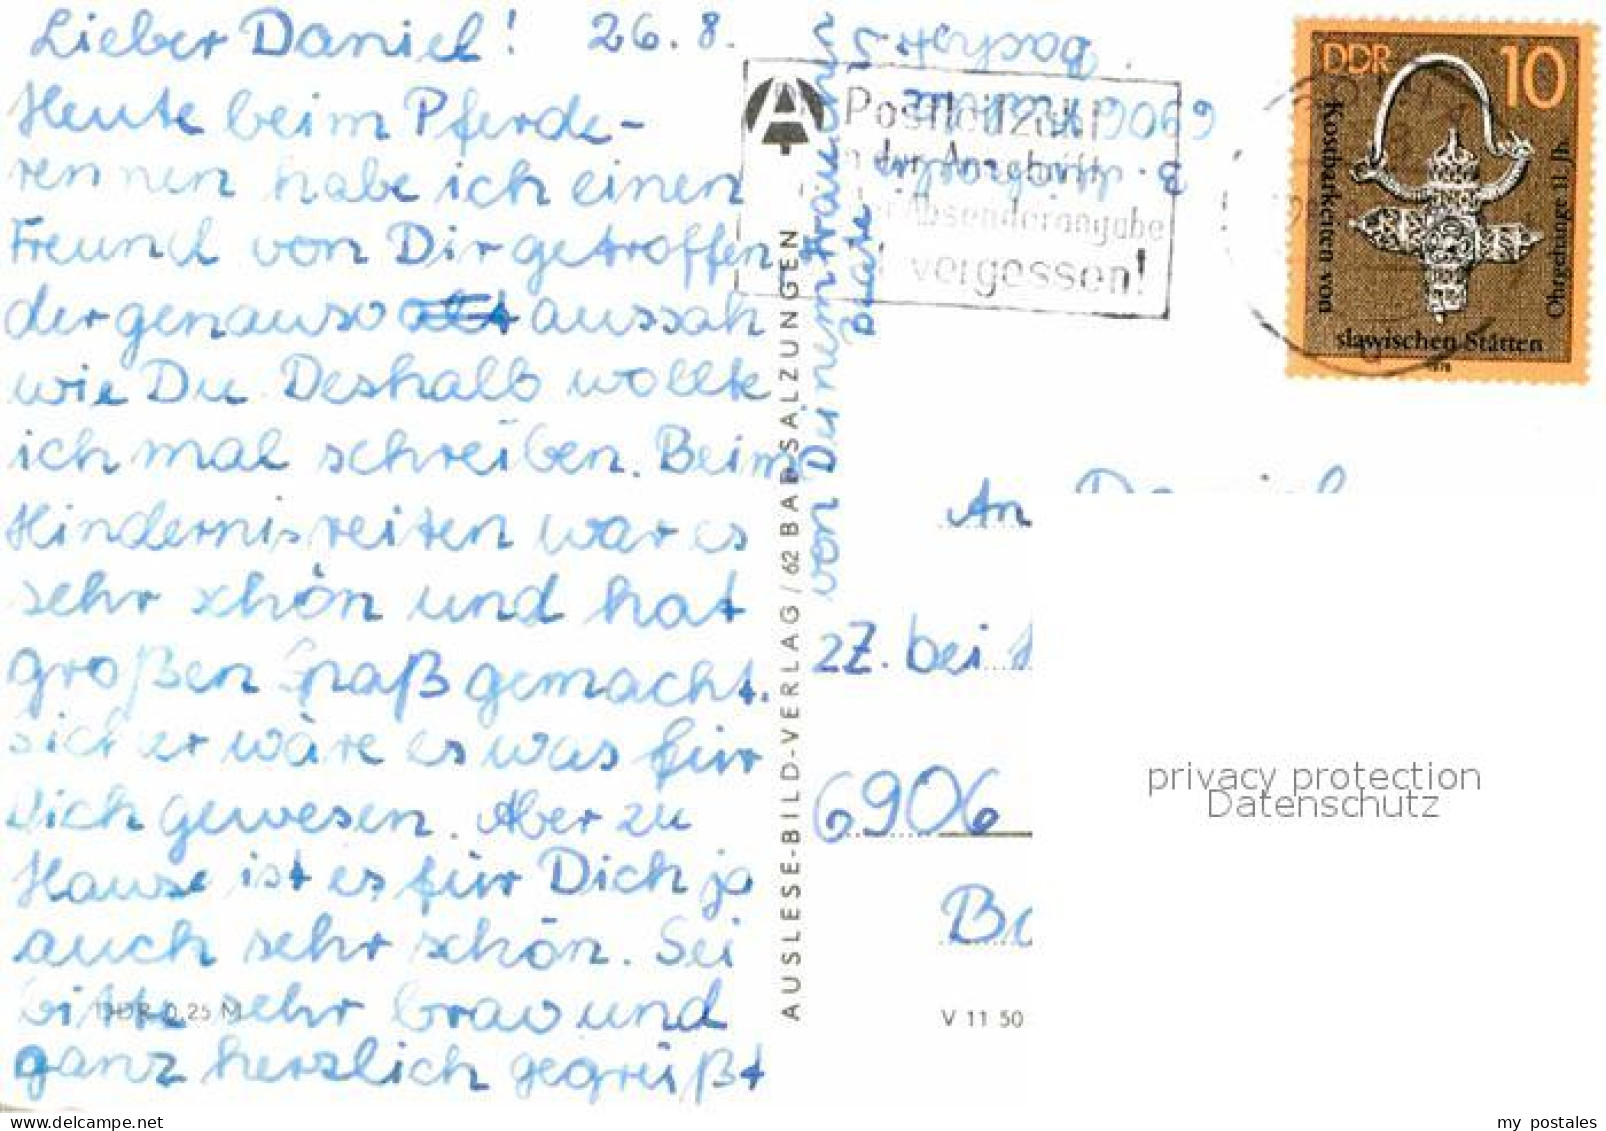 Lieber Daniel! 26.8.
Heute beim Pferde-
rennen habe ich einen
Freund von Dir getroffen
der genauso aussah
wie Du Deshalb wollte
ich mal schreiben. Beim
Hindernisreiten war es
sehr schön und hat
großen Spaß gemacht.
Sicher wäre es was für
Dich gewesen. Aber zu
Hause ist es für Dich ja
auch sehr schön. Sei
bitte sehr brav und
ganz herzlich gegrüßt
von Deinem
DDR 0,25 M
AUSLESE-BILD-VERLAG / 62 BAD SALZUNGEN
Postleitzahl
in der Anschrift
Absenderangabe
vergessen!
DDR 10
Kostbarkeiten von
slawischen Stätten
Ohrgehänge 11. Jh.
1978
An Daniel
zZ. bei
6906
V 11 50
privacy protection
Datenschutz
my_postales
https://www.delcampe.net